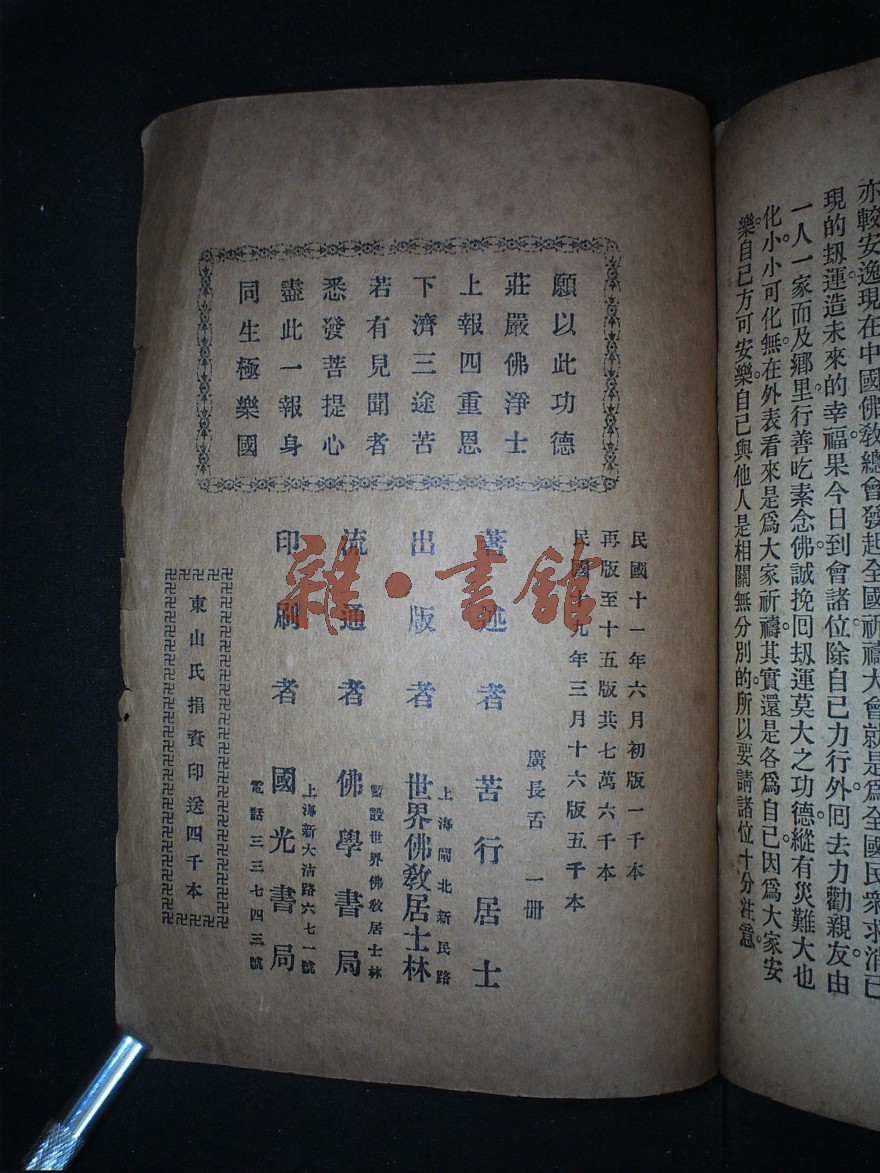 亦較安逸現在中國佛敎總會發起全國祈禱大會就是爲全國民衆求消已
現的刼運造未來的幸福果今日到會諸位除自己力行外囘去力勸親友由
一人一家而及鄉里行善吃素念佛誠挽囘刼運莫大之功德縱有災難大也
化小小可化無在外表看來是爲大家祈禱其實還是各爲自己因爲大家安
樂自己方可安樂自己與他人是相關無分別的所以要請諸位十分注意
願以此功德
莊嚴佛淨土
上報四重恩
下濟三途苦
若有見聞者
悉發菩提心
盡此一報身
同生極樂國
民國十一年六月初版一千本
再版至十五版共七萬六千本
民國十九年三月十六版五千本
廣長舌 一册
著述者 苦行居士
上海閘北新民路
出版者 世界佛敎居士林
暫設世界佛敎居士林
流通者 佛學書局
上海新大沽路六七一號
印刷者 國光書局
電話三三七四三號
東山氏捐資印送四千本
雜·書館